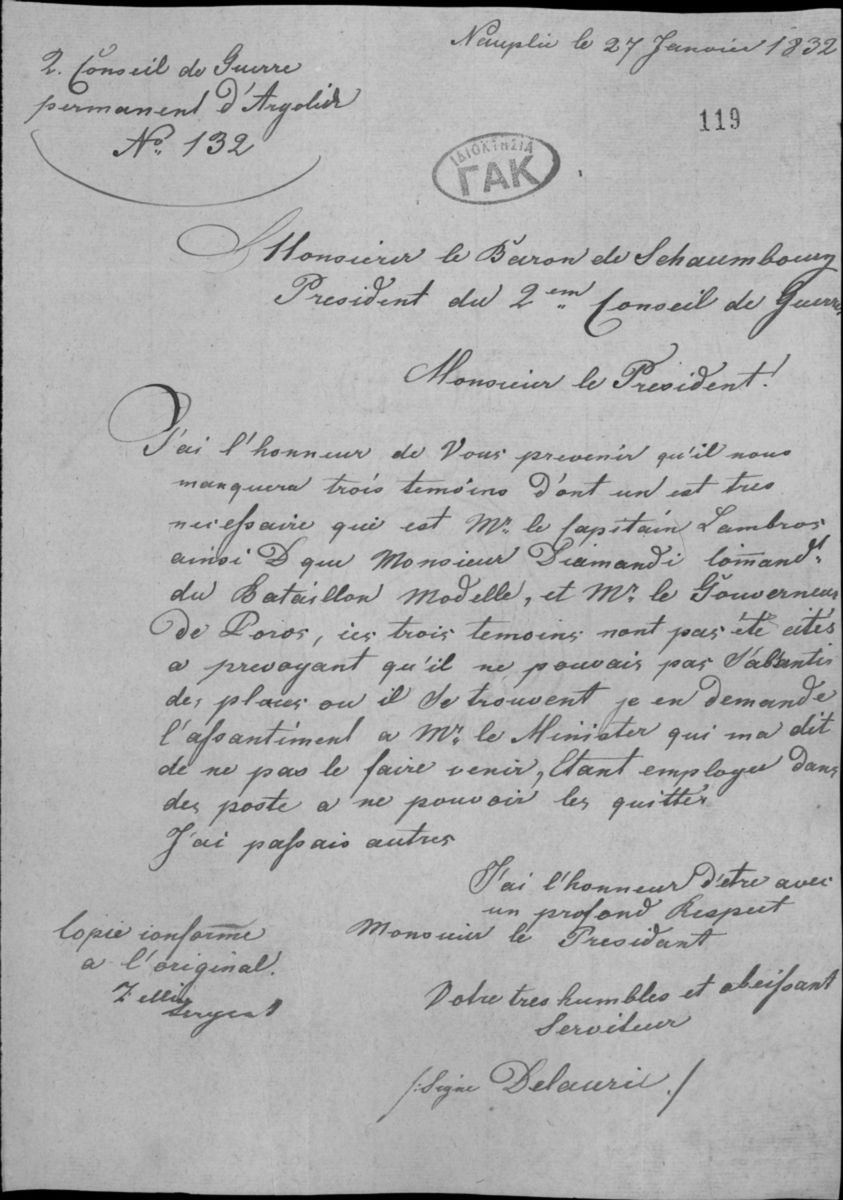 Nauplie le 27 Janvier 1832
2. Conseil de Guerre
permanent d'Argolide
No. 132
119
ΙΔΙΟΚΤΗΣΙΑ
ΓΑΚ
Monsieur le Baron de Schaumbourg
President du 2em Conseil de Guerre
Monsieur le President!
J'ai l'honneur de Vous prevenir qu'il nous
manquera trois temoins d'ont un est tres
necessaire qui est Mr. le Capitain Lambros
ainsi que Monsieur Diamandi Command
du Bataillon Modelle, et Mr. le Gouverneur
de Poros, ces trois temoins nont pas été cités
a prevoyant qu'il ne pouvais pas s'absantir
des places ou il se trouvent je en demandé
l'assantiment a Mr. le Minister qui ma dit
de ne pas le faire venir, Etant employer dans
des poste a ne pouvoir les quitter
J'ai passais autres
J'ai l'honneur d'etre avec
un profond Respect
Monsieur le Presidant
Copie conforme
a l'original.
Sergent
Votre tres humbles et obeissant
Serviteur
/:Signe Delauri ./